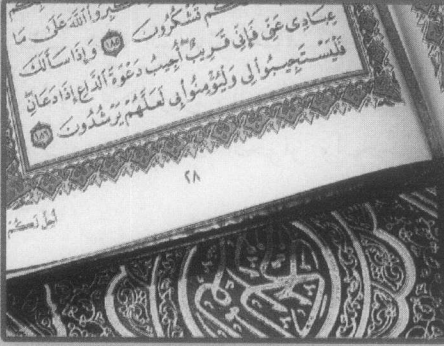 كُمْ تَشْكُرُونَ ١٨٥ وَإِذَا سَأَلَكَ
عِبَادِى عَنِّى فَإِنِّى قَرِيبٌ أُجِيبُ دَعْوَةَ ٱلدَّاعِ إِذَا دَعَانِ
فَلْيَسْتَجِيبُوا۟ لِى وَلْيُؤْمِنُوا۟ بِى لَعَلَّهُمْ يَرْشُدُونَ ١٨٦
٢٨
أُحِلَّ لَكُمْ